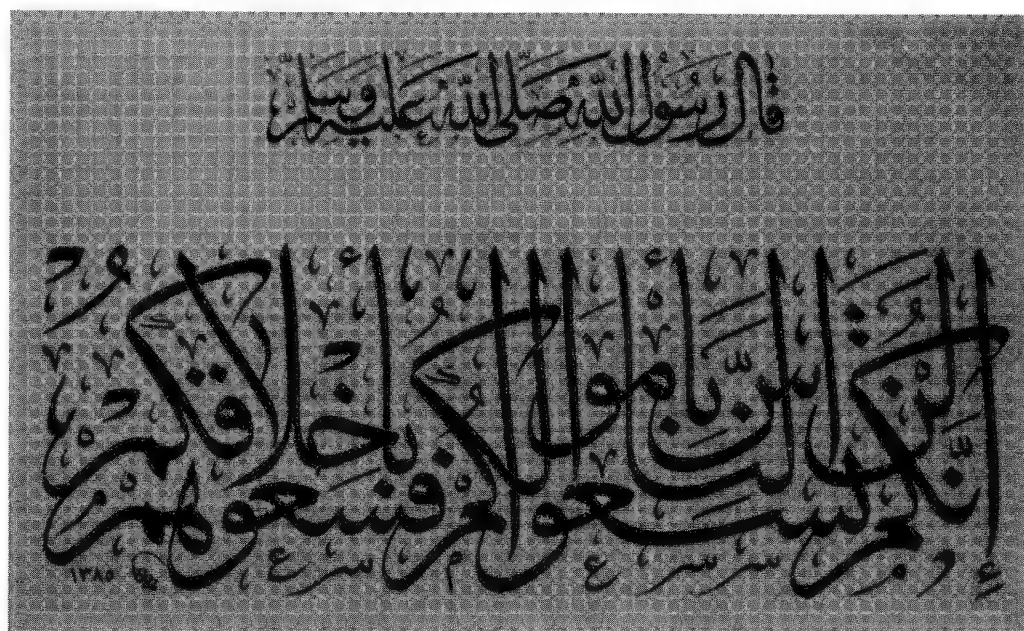 قَالَ رَسُولُ اللّٰهِ صَلَّى اللّٰهُ عَلَيْهِ وَسَلَّمَ
إِنَّكُمْ لَنْ تَسَعُوا النَّاسَ بِأَمْوَالِكُمْ فَسَعُوهُمْ بِأَخْلَاقِكُمْ
١٣٨٥